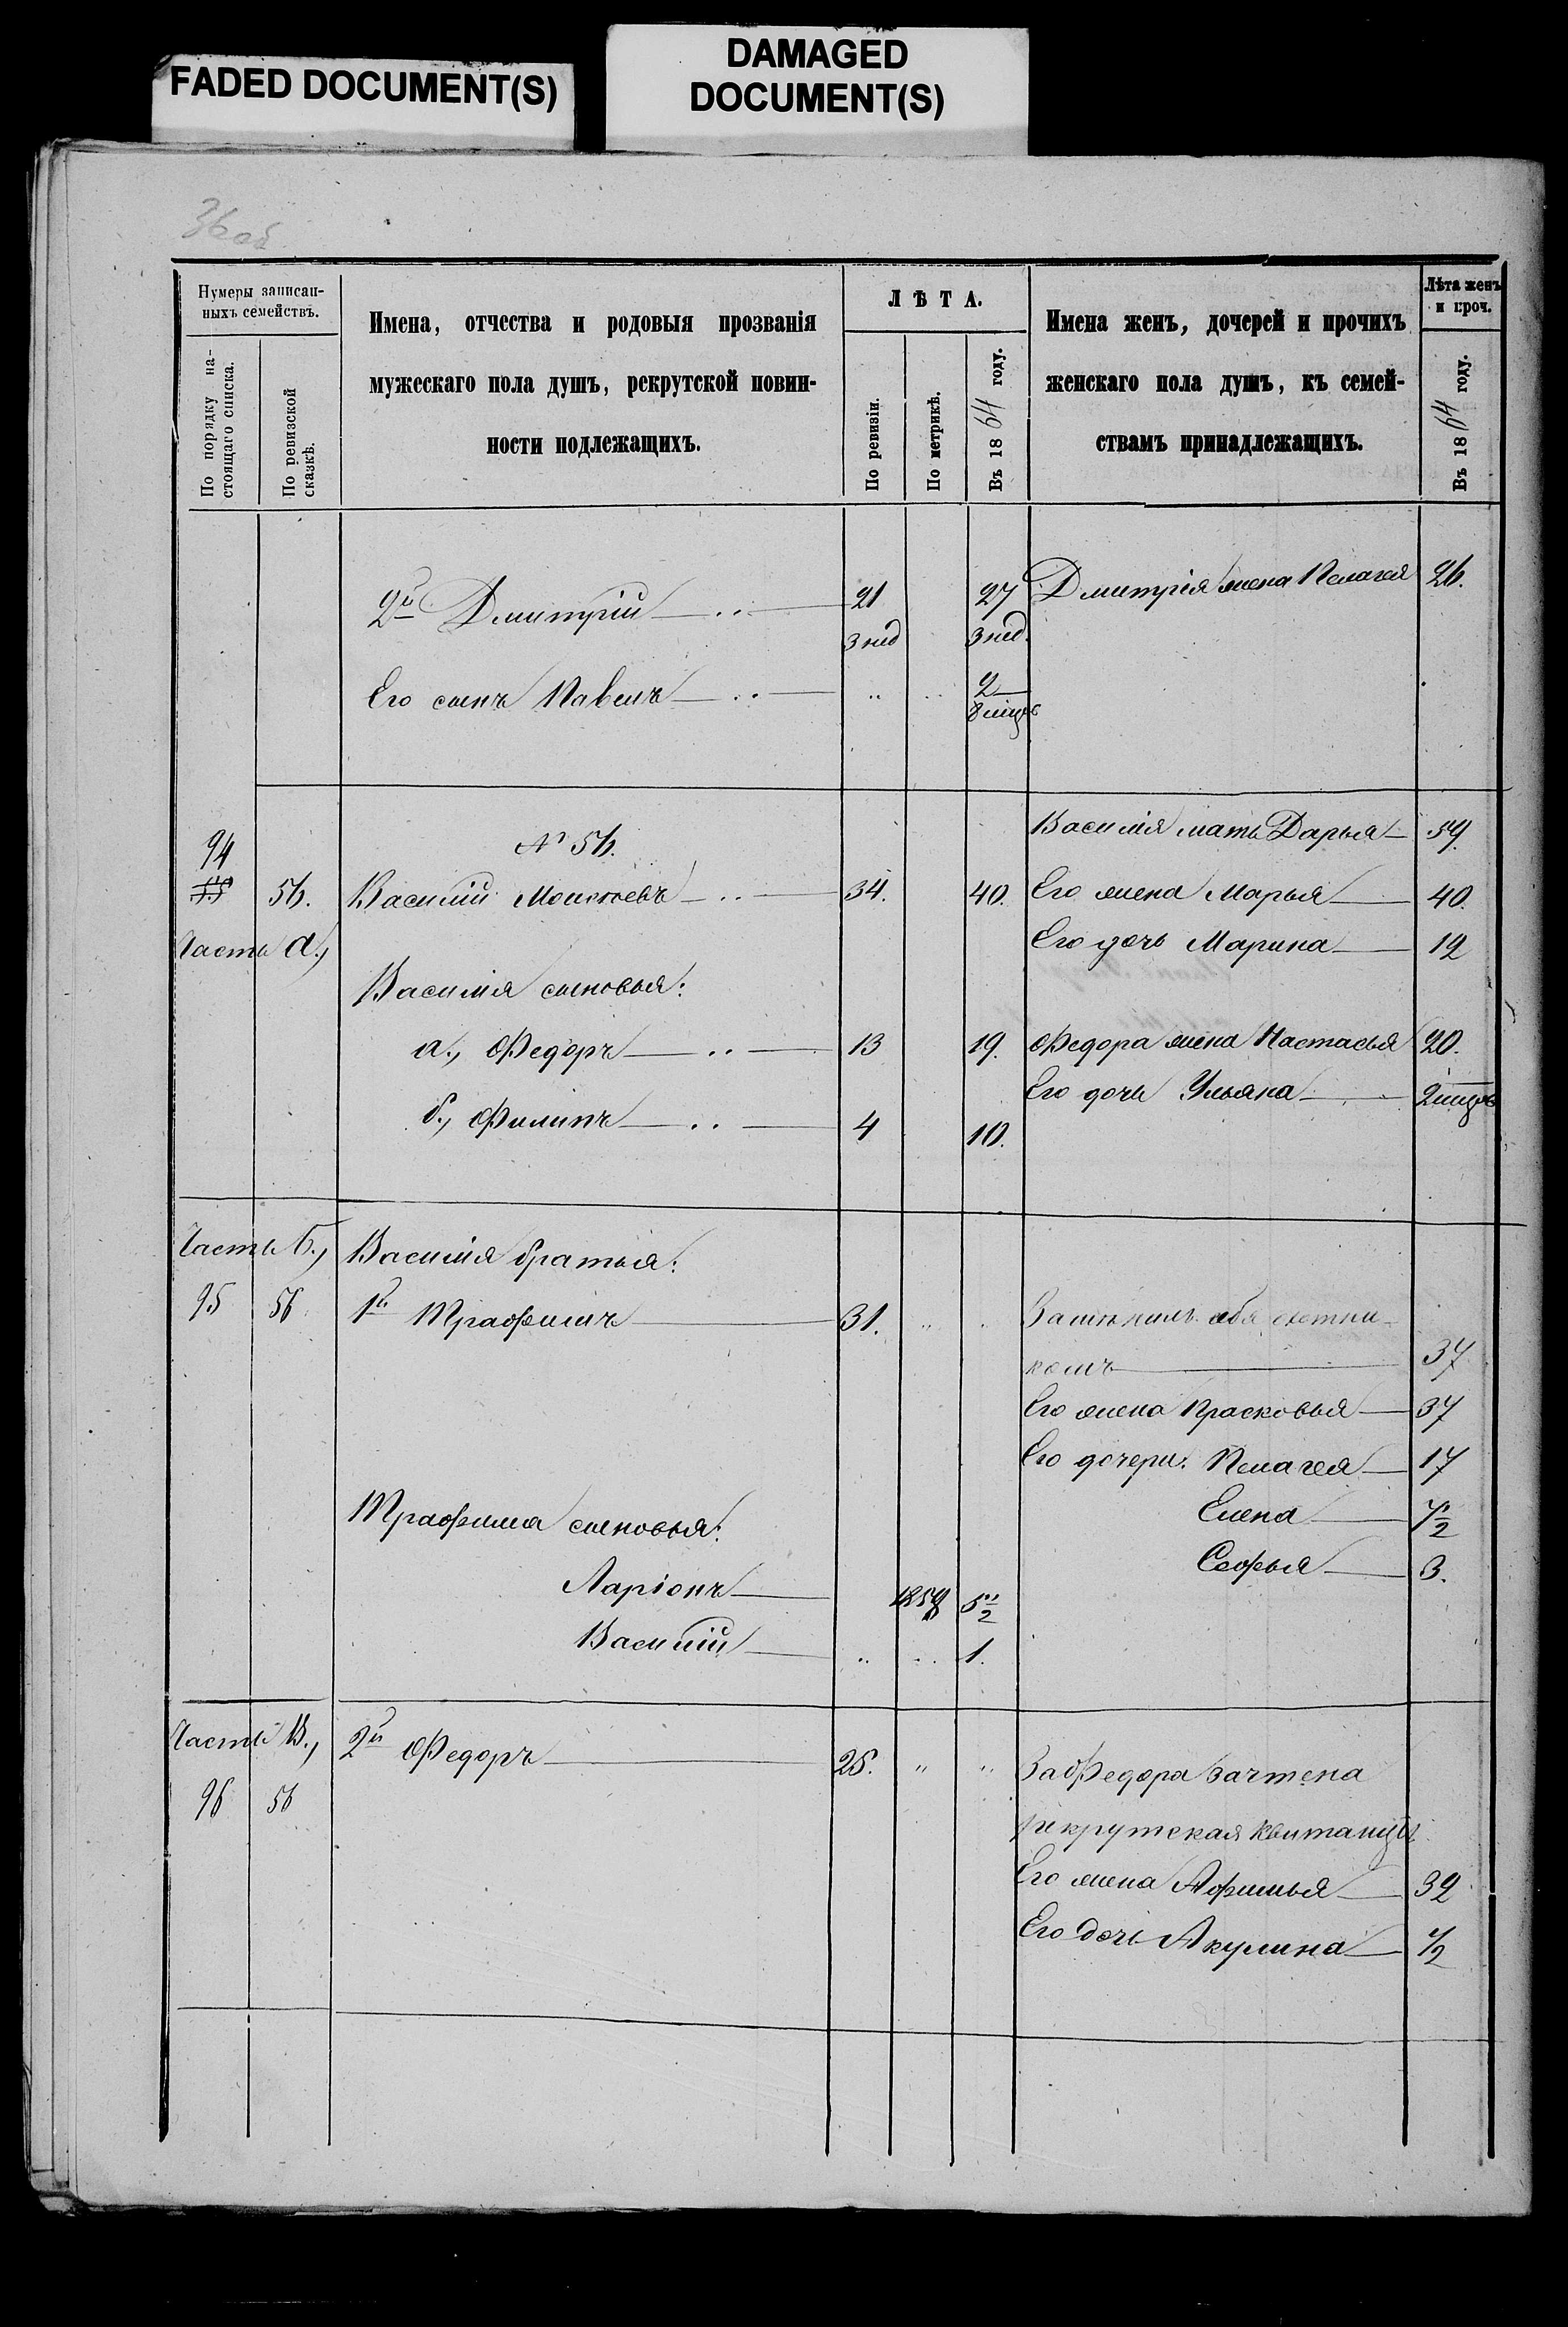 FADED DOCUMENT(S)
DAMAGED
DOCUMENT(S)
36об
Нумеры записан-
ныхъ семействъ.
По порядку на-
стоящаго списка.
По ревизской
сказкѣ.
Имена, отчества и родовыя прозванія
мужескаго пола душъ, рекрутской повин-
ности подлежащихъ.
ЛѢТА.
По ревизіи.
По метрикѣ.
Въ 1864 году.
Имена женъ, дочерей и прочихъ
женскаго пола душъ, къ семей-
ствамъ принадлежащихъ.
Лѣта женъ
и проч.
Въ 1864 году.
2й Дмитрій 21 27 Дмитрія жена Пелагея 26.
3 нед 3 нед.
Его сынъ Павелъ 2
8 мцовъ
94 N 56. Василія мать Дарья 59.
56. Василій Моисѣевъ 34. 40. Его жена Марья 40.
Часть а., Его дочь Марина 12
Василія сыновья:
а., Федоръ 13 19. Федора жена Настасья 20.
Его дочь Ульяна 2 мцовъ
б., Филипъ 4 10.
Часть б., Василія братья:
95 56 1й Трафимъ 31. себя охотни-
комъ 37
Его жена Прасковья 37
Его дочери: Пелагея 17
Трафима сыновья: Елена 7 1/2
Софья 3.
Ларіонъ 1858 5 1/2
Василій 1.
Часть В., 2й Федоръ 25. " " За Федора зачтена
96 56 рекрутская квитанція.
Его жена Афимья 32
Его дочь Акулина 1/2